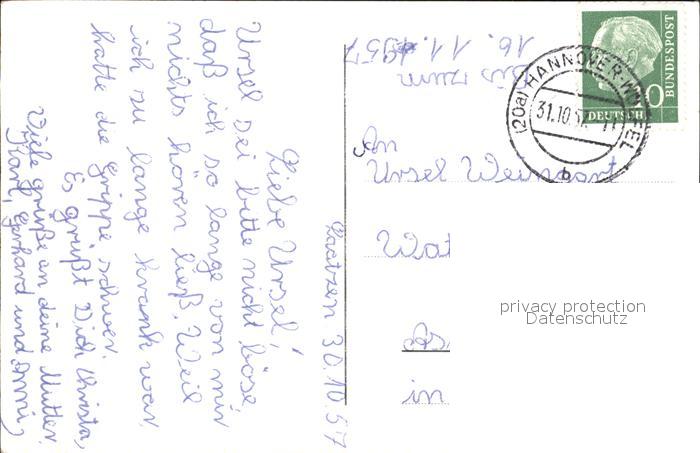 Laatzen 30.10.57
Liebe Ursel!
Ursel sei bitte nicht böse,
daß ich so lange von mir
nichts hören ließ. Weil
ich zu lange krank war,
hatte die Grippe schwer.
Es grüßt Dich Christa,
Viele grüße an deine Mutter,
Karl, Gerhard und Anni,
Bis zum
16. 11. 1957
An
Ursel
Wat
in
DEUTSCHE
BUNDESPOST
(20a) HANNOVER-
31.10.57
b
privacy protection
Datenschutz